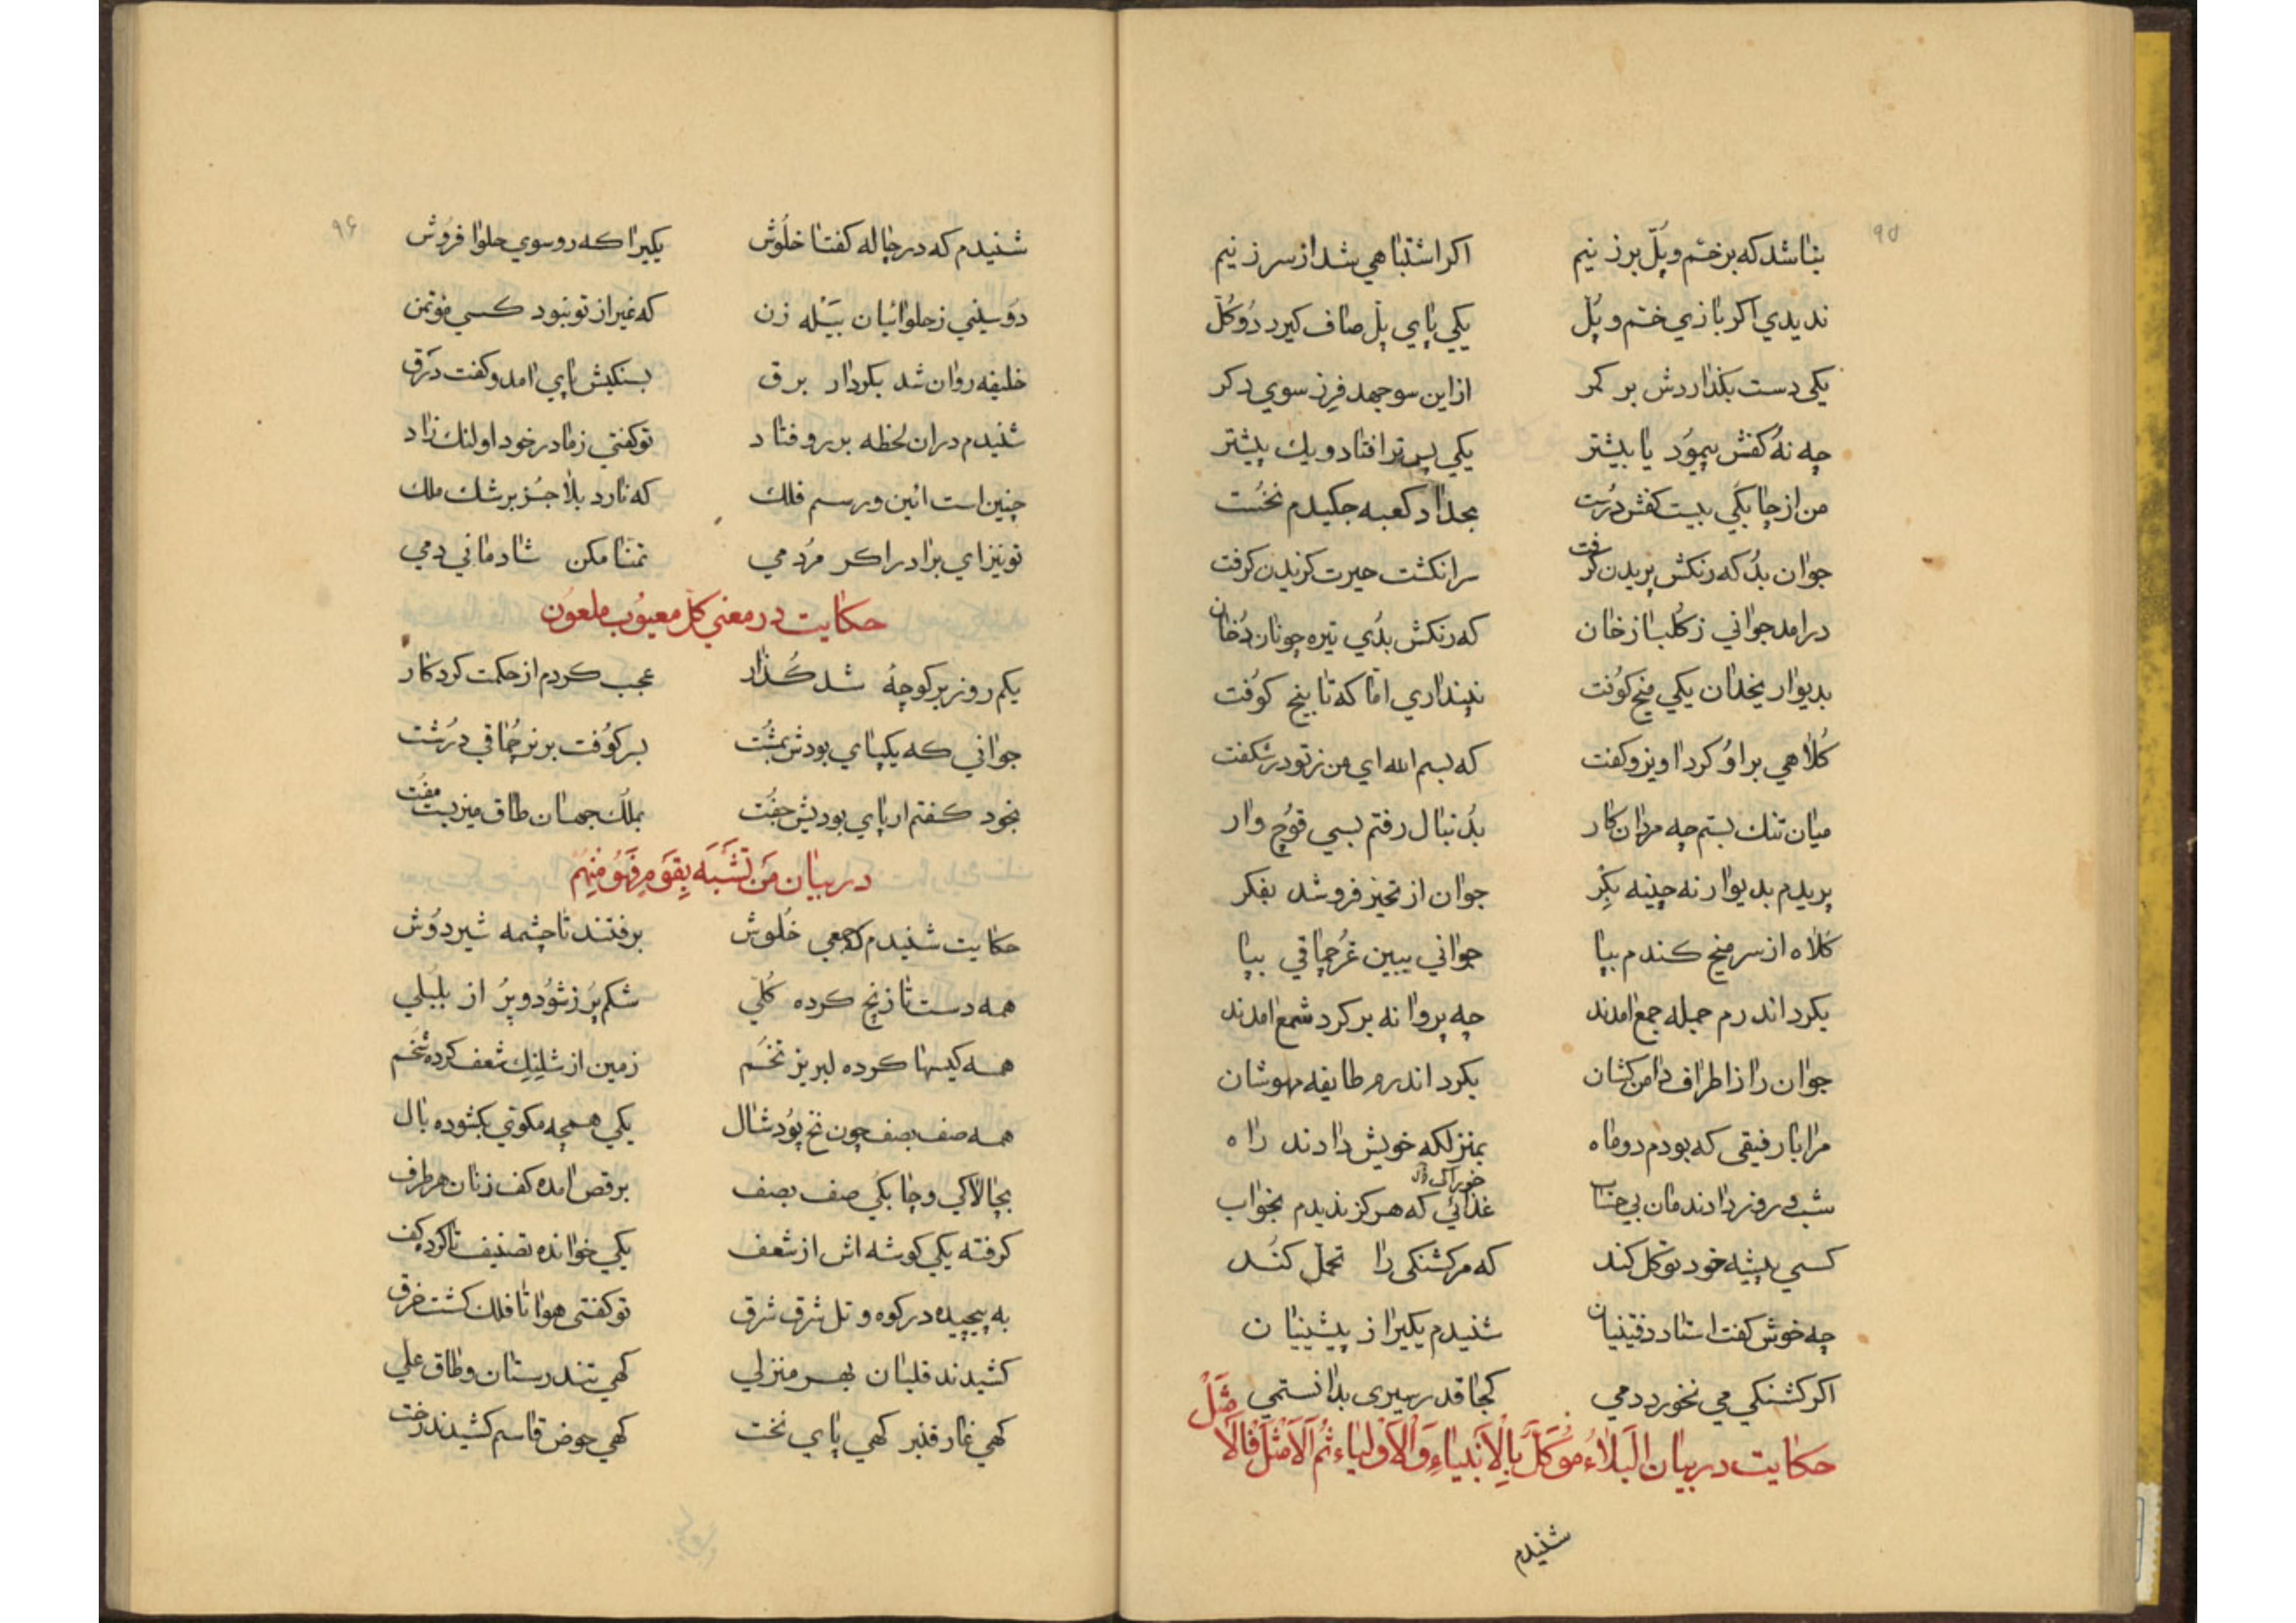 ۹۵
بنا شد که بر ختم و پل برزنیم اکر اشتباهی شد از سر زنیم
ندیدی اکر بازی ختم و پل یکی پای پل صاف کیرد دو کل
یکی دست بکذاردش بر کمر ازاین سو جهد فرز سوی دکر
چه نه کفش پیمود یا بیشتر یکی پس تر افتاد و یك پیشتر
من از چابکی بیست کفش درست بجداد کعبه جکیدم نخست
جوان بد که رنکش پریدن کرفت سر انکشت حیرت کزیدن کرفت
درامد جوانی ز کلباز خان که رنکش بدی تیره چونان دخان
بدیوار یخدان یکی میخ کوفت نپنداری اما که تا بیخ کوفت
کلاهی بر او کرد اویز و کفت که بسم الله ای من ز تو در شکفت
میان تنك بستم چه مردان کار بدنبال رفتم بسی قوچ وار
پریدم بدیوار نه چینه بکر جوان از تحیز فرو شد بفکر
کلاه از سر میخ کندم بپا جوانی ببین غرچماقی بپا
بکرد اندرم جمله جمع امدند چه پروانه بر کرد شمع امدند
جوان را ز اطراف دامن کشان بکرد اندرم طایفه مهوشان
مرا با رفیقی که بودم دو ماه بمنزلکه خویش دادند راه
شب و روز دادندمان بی حساب خوراك و غذائی که هرکز ندیدم بخواب
کسی پیشه خود توکل کند که مر کشنکی را تحمل کند
چه خوش کفت استاد دقینیان شنیدم یکیرا ز پیشینیان
اکر کشنکی می نخورد دمی کجا قدر سیری بدانستمی
حکایت در بیان البلاء موکل بالانبیاء والاولیاء ثم الامثل فالامثل
شنیدم
۹۶
شنیدم که در چاله کفتا خلوش یکیرا که رو سوی حلوا فروش
دو سینی ز حلوائیان بیله زن که غیر از تو نبود کسی مؤتمن
خلیفه روان شد بکردار برق بسنکیش پای امد و کفت درق
شنیدم دران لحظه بر رو فتاد تو کفتی ز مادر خود او لنك زاد
چنین است ائین و رسم فلك که نارد بلا جز بر شك ملك
تو نیز ای برادر اکر مردمی تمنا مکن شادمانی دمی
حکایت در معنی کل معیوب ملعون
یکم روز بر کوچۀ شد کذار عجب کردم از حکمت کردکار
جوانی که یکپای بودش بمشت بسر کوفت برنر چماقی درشت
بخود کفتم ار پای بودیش جفت بملك جهان طاق میزیست مفت
در بیان من تشبه بقوم فهو منهم
حکایت شنیدم که جمعی خلوش برفتند تا چشمه شیر دوش
همه دست تا زنج کرده کلی شکم پر ز شود و پر از بلبلی
همه کیسها کرده لبریز تخم زمین از شلینك شعف کرده شخم
همه صف بصف چون نخ پود شال یکی همچه مکوتی بکشوده بال
بچالاکی و چابکی صف بصف برقص امده کف زنان هر طرف
کرفته یکی کوشه اش از شعف یکی خوانده تصنیف تا کرد کف
به پیچیده در کوه و تل شرق شرق تو کفتی هوا تا فلك کشت خرق
کشیدند قلیان بهر منزلی کهی تندرستان و طاق علی
کهی غار قنبر کهی پای نخت کهی حوض قاسم کشیدند رخت